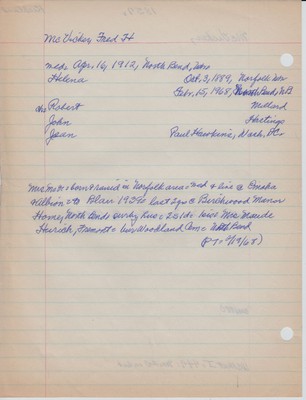 McVicker, Fred H
mede Apr. 16, 1912, North Bend, Nebr
Helena Oct. 3, 1889, Norfolk Nebr
Feb. 15, 1968, North Bend, NB
chs Robert Millard
John Hastings
Jean Paul Hawkins, Wash, DC
Mrs McV = born & raised in Norfolk area = md & liv's to Omaha
& Albion = to Blair 1930 last 2 yrs @ Birchwood Manor
Home, North Bend = surv by hus = 2s 1d = Mrs Maude
Fremont = bur Woodland Cem = North Bend
(PT = 2/19/68)